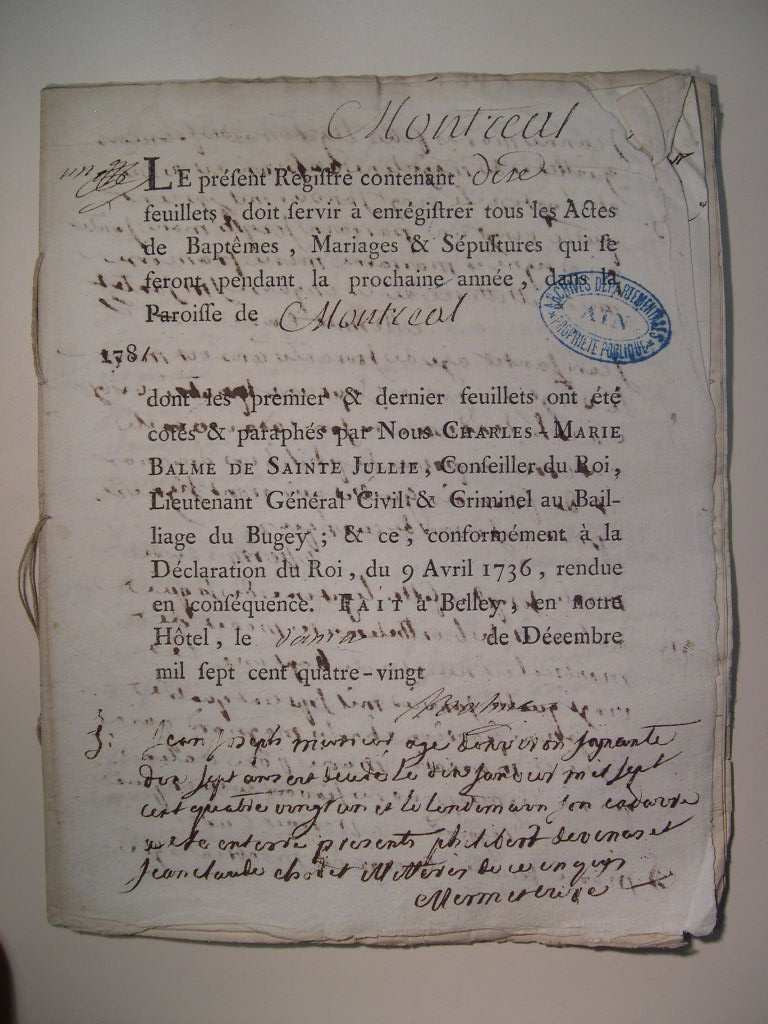 Montreal
un
LE préſent Regiſtre contenant dix
feuillets, doit ſervir à enrégiſtrer tous les Actes
de Baptêmes, Mariages & Sépultures qui ſe
feront pendant la prochaine année, dans la
Paroiſſe de Montreal
ARCHIVES DÉPARTEMENTALES
AIN
PROPRIÉTÉ PUBLIQUE
1781
dont les premier & dernier feuillets ont été
cotés & paraphés par Nous CHARLES-MARIE
BALME DE SAINTE JULLIE, Conſeiller du Roi,
Lieutenant Général Civil & Criminel au Bail-
liage du Bugey; & ce, conformément à la
Déclaration du Roi, du 9 Avril 1736, rendue
en conſéquence. FAIT à Belley, en notre
Hôtel, le de Décembre
mil ſept cent quatre-vingt
Jean Joseph agé d'environ soixante
dix sept ans est decede le dix janvier mil sept
cent quatre vingt un et le lendemain son cadavre
a ete enterré presents philibert devenas et
Jean claude et de ce enquis